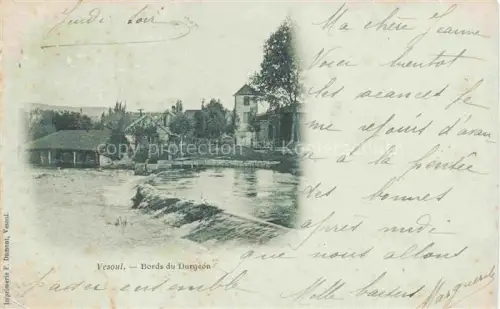 Jeudi soir
Ma chère Jeanne
Voici bientôt
les vacances je
me réjouis d'avan
ce à la pensée
des bonnes
après midi
que nous allons
passer ensemble
Mille baisers
Marguerite
copyright protection
Vesoul. — Bords du Durgeon
Imprimerie F. Dumont, Vesoul.